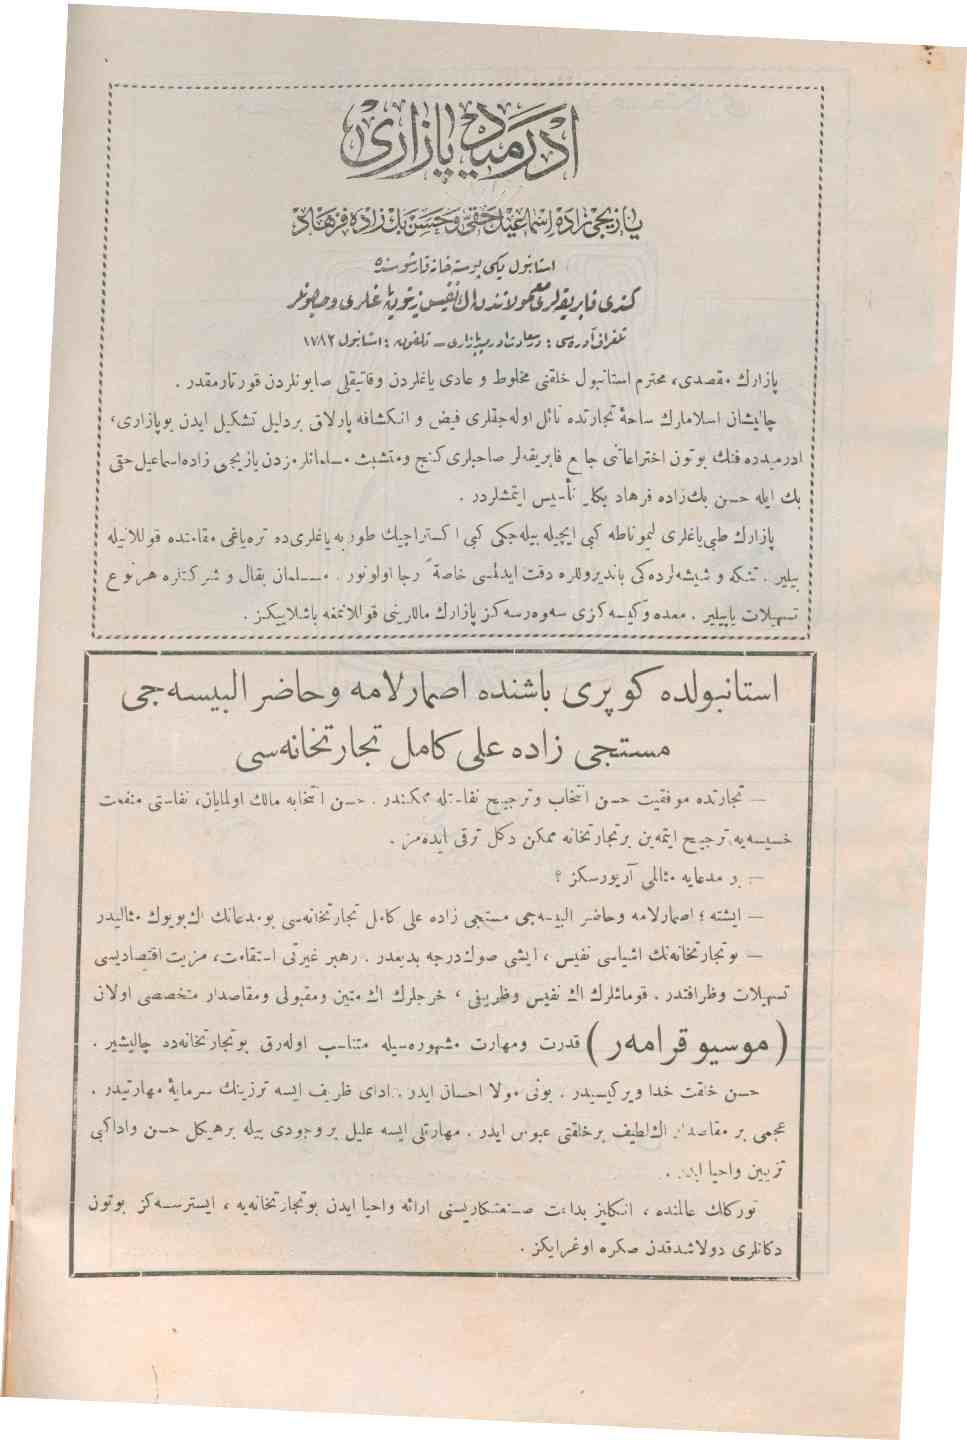 ادرمید پازاری
یازیجی زاده اسماعیل حقی و حسن بك زاده فرهاد
استانبول یكی پوسته خانه قارشوسنده
كندی فابریقه لری معمولاتندن اك نفیس زیتون یاغلری وصابونلر
تلغراف آدره سی : درسعادت ادرمید پازاری ــ تلفون : استانبول ١٧٨٢
پازارك مقصدی، محترم استانبول خلقنی مخلوط و عادی یاغلردن وقاتیقلی صابونلردن قورتارمقدر .
چالیشان اسلامارك ساحهٔ تجارتده نائل اوله جقلری فیض و انكشافه پارلاق بردلیل تشكیل ایدن بوپازاری،
ادرمیدده فنك بوتون اختراعاتنی جامع فابریقه لر صاحبلری كنج ومتشبث مسلمانلرمزدن یازیجی زاده اسماعیل حقی
بك ایله حسن بك زاده فرهاد بكلر تأسیس ایتمشلردر .
پازارك طبی یاغلری لیموناطه كبی ایچیله بیله جكی كبی اكستراچیك طورپه یاغلری ده تره یاغی مقامنده قوللانیله
بیلیر . تنكه و شیشه لرده كی باندیروللره دقت ایدلمسی خاصهً رجا اولونور . مسلمان بقال و شركتلره هرنوع
تسهیلات یاپیلیر . معده و كیسه كزی سه وه رسه كز پازارك ماللرینی قوللانمغه باشلاییكز .
استانبولده كوپری باشنده اصمارلامه وحاضر البیسه جی
مستجی زاده علی كامل تجارتخانه سی
— تجارتده موفقیت حسن انتخاب وترجیح نفاستله ممكندر . حسن انتخابه مالك اولمایان، نفاستی منفعت
خسیسه یه ترجیح ایتمه ین برتجارتخانه ممكن دكل ترقی ایده مز .
— بو مدعایه مثالمی آریورسكز ؟
— ایشته ؛ اصمارلامه وحاضر البیسه جی مستجی زاده علی كامل تجارتخانه سی بومدعانك اك بویوك مثالیدر
— بو تجارتخانه نك اشیاسی نفیس ، ایشی صوك درجه بدیعدر . رهبر غیرتی استقامت، مزیت اقتصادیسی
تسهیلات وظرافتدر . قوماشلرك اك نفیس وظریفنی ، خرجلرك اك متین ومقبولی ومقاصدار متخصصی اولان
( موسیو قرامه ر ) قدرت ومهارت مشهوره سیله متناسب اوله رق بوتجارتخانه ده چالیشیر .
حسن خلقت خدا ویركیسیدر . بونی مولا احسان ایدر . ادای ظریف ایسه ترزینك سرمایهٔ مهارتیدر .
عجمی بر مقاصدار اك لطیف برخلقتی عبوس ایدر . مهارتلی ایسه علیل بر وجودی بیله برهیكل حسن واداكبی
تزیین واحیا ایدر .
توركلك عالمنده ، انكلیز بداعت صنعتكاریسنی ارائه واحیا ایدن بوتجارتخانه یه ، ایسترسه كز بوتون
دكانلری دولاشدقدن صكره اوغرایكز .